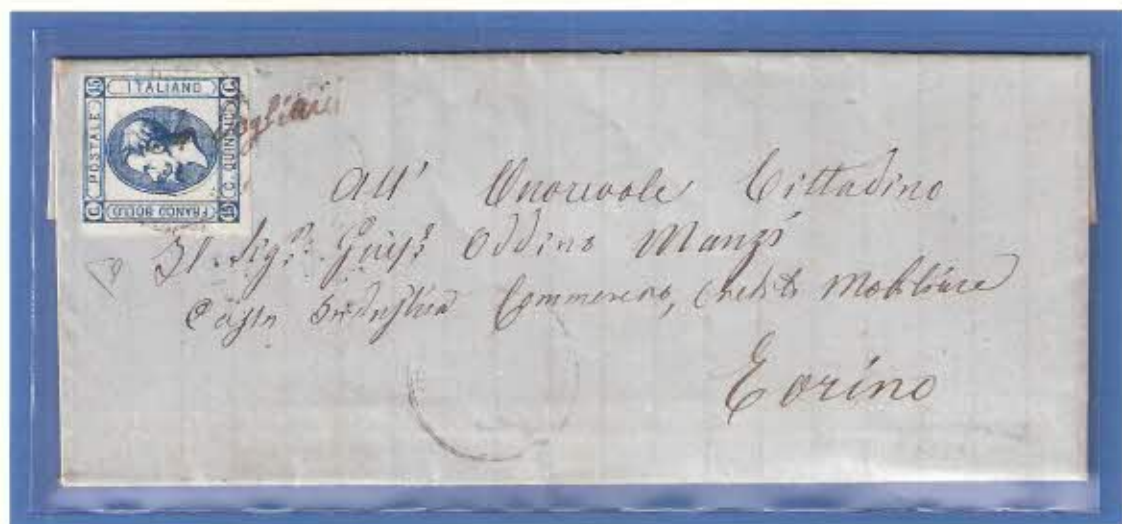 ITALIANO
C. QUINDICI
FRANCO BOLLO
POSTALE
C. 15
All' Onorevole Cittadino
Il Sig.r Giusp.e Oddino Manzi
Cassa Industria Commercio, Credito Mobiliare
Torino